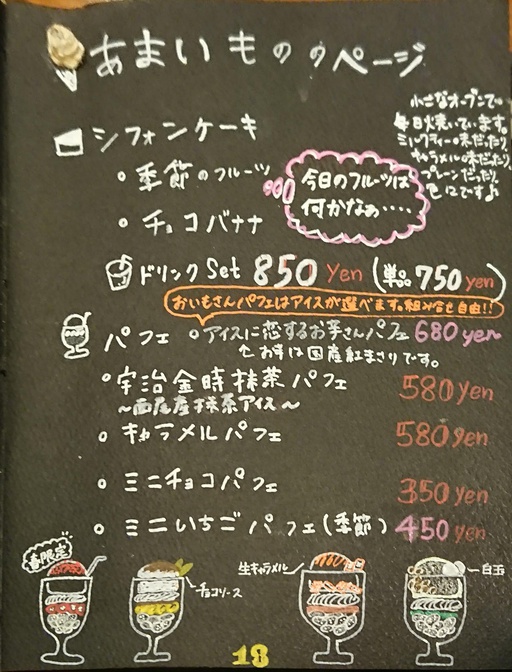 あまいもののページ
小さなオーブンで。
毎日焼いています。
ミルクティー味だったり、
キャラメル味だったり、
プレーンだったり。
色々です♪
シフォンケーキ
・季節のフルーツ
今日のフルーツは
何かなぁ‥‥‥
・チョコバナナ
ドリンクSet 850 Yen (単品 750 yen)
おいもさんパフェはアイスが選べます。組み合せ自由!!
パフェ ・アイスに恋するお芋さんパフェ 680 yen
お芋は国産紅まさりです。
・宇治金時抹茶パフェ 580 yen
〜西尾産抹茶アイス〜
・キャラメルパフェ 580 yen
・ミニチョコパフェ 350 yen
・ミニいちごパフェ(季節) 450 yen
春限定
チョコソース
生キャラメル
白玉
18